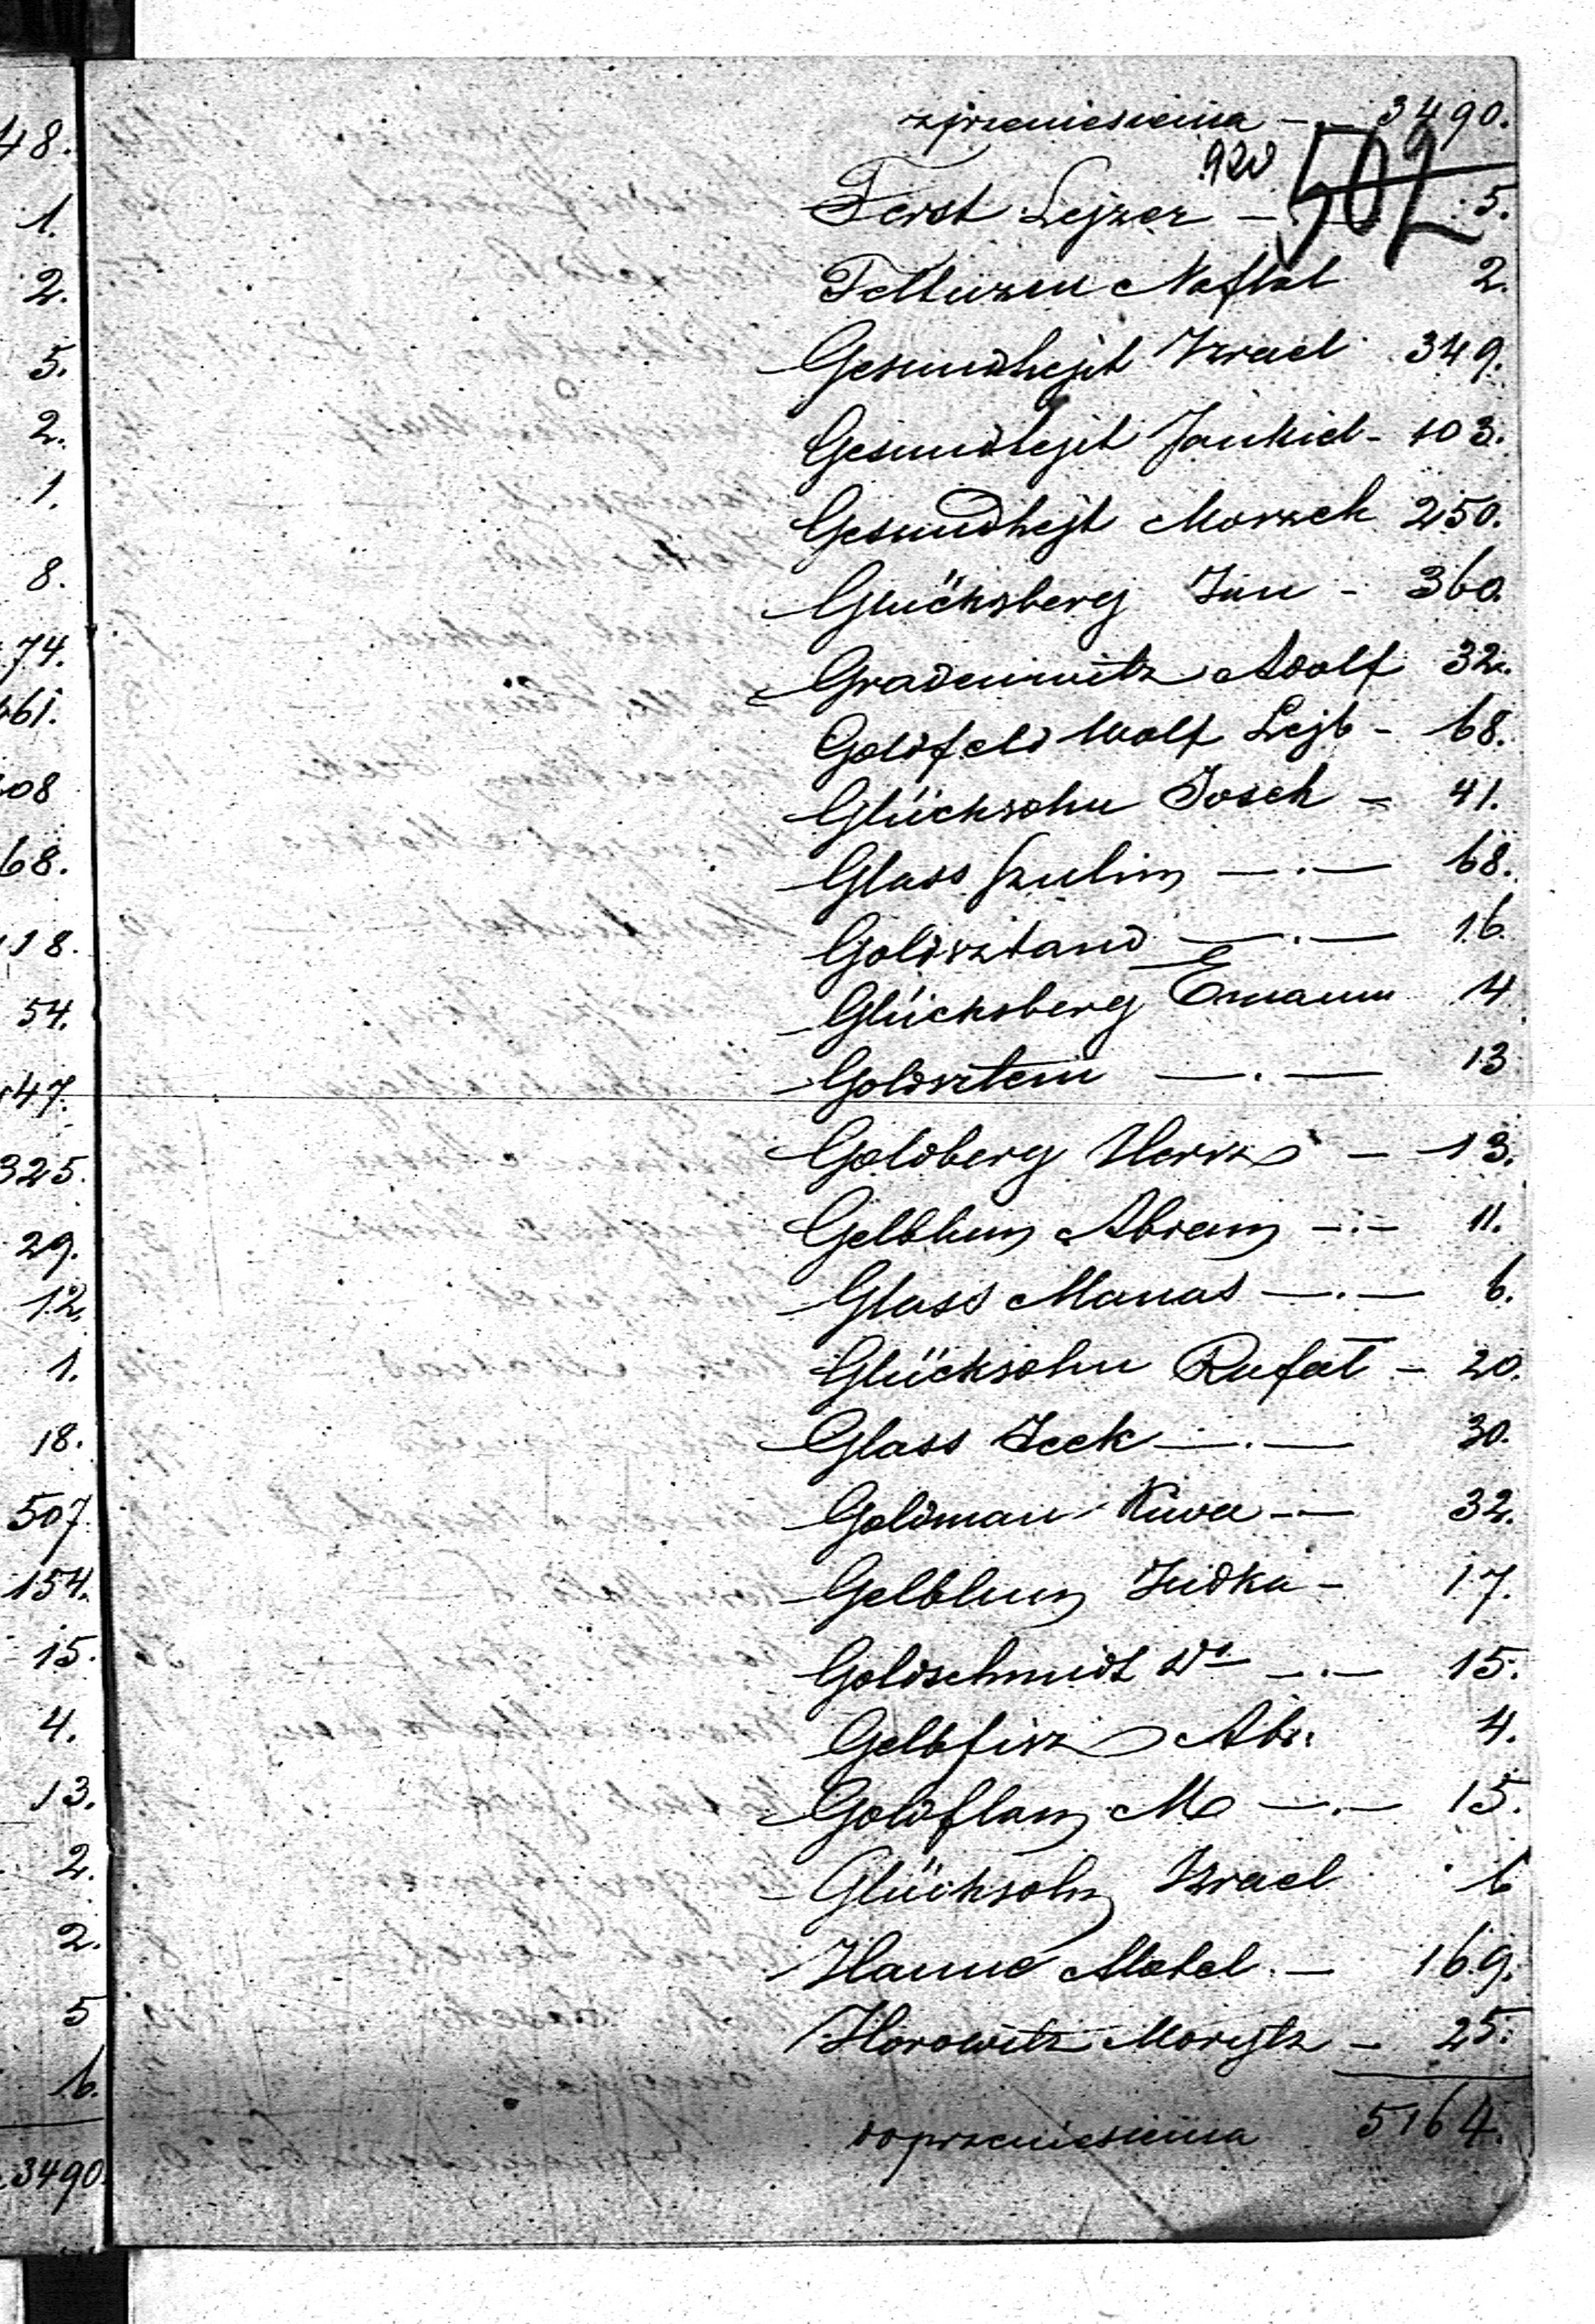 48.
1.
2.
5.
2.
1.
8.
74.
461.
08
68.
118.
54.
147.
325.
29.
12.
1.
18.
507.
154.
15.
4.
13.
2.
2.
5
6.
3490.
z przeniesienia — . — 3490.
920 502
Ferst Lejzer — 5.
Naftal 2.
Gesundhejt Izrael 349.
Gesundhejt Jankiel - 103.
Gesundhejt Moszek 250.
Glücksberg Jan - 360.
Gradenwitz Adolf 32.
Goldfeld Wolf Lejb - 68.
Glücksohn Josek - 41.
Glass Szulim — . — 68.
Goldsztand — . — 16.
Glücksberg Emanu 14
Goldsztein — . — 13
Goldberg Hersz — 13.
Gelblum Abram — . — 11.
Glass Manas — . — 6.
Glücksohn Rafał — 20.
Glass Icek — . — 30.
Goldman Kiwa — — 32.
Gelblum Judka — 17.
Goldschmidt Dr — . — 15.
Gelbfisz Abr. 4.
Goldflam M — . — 15.
Glücksohn Izrael 6
Hanne Motel. — 169.
Horowitz Morytz — 25.
do przeniesienia 5164.